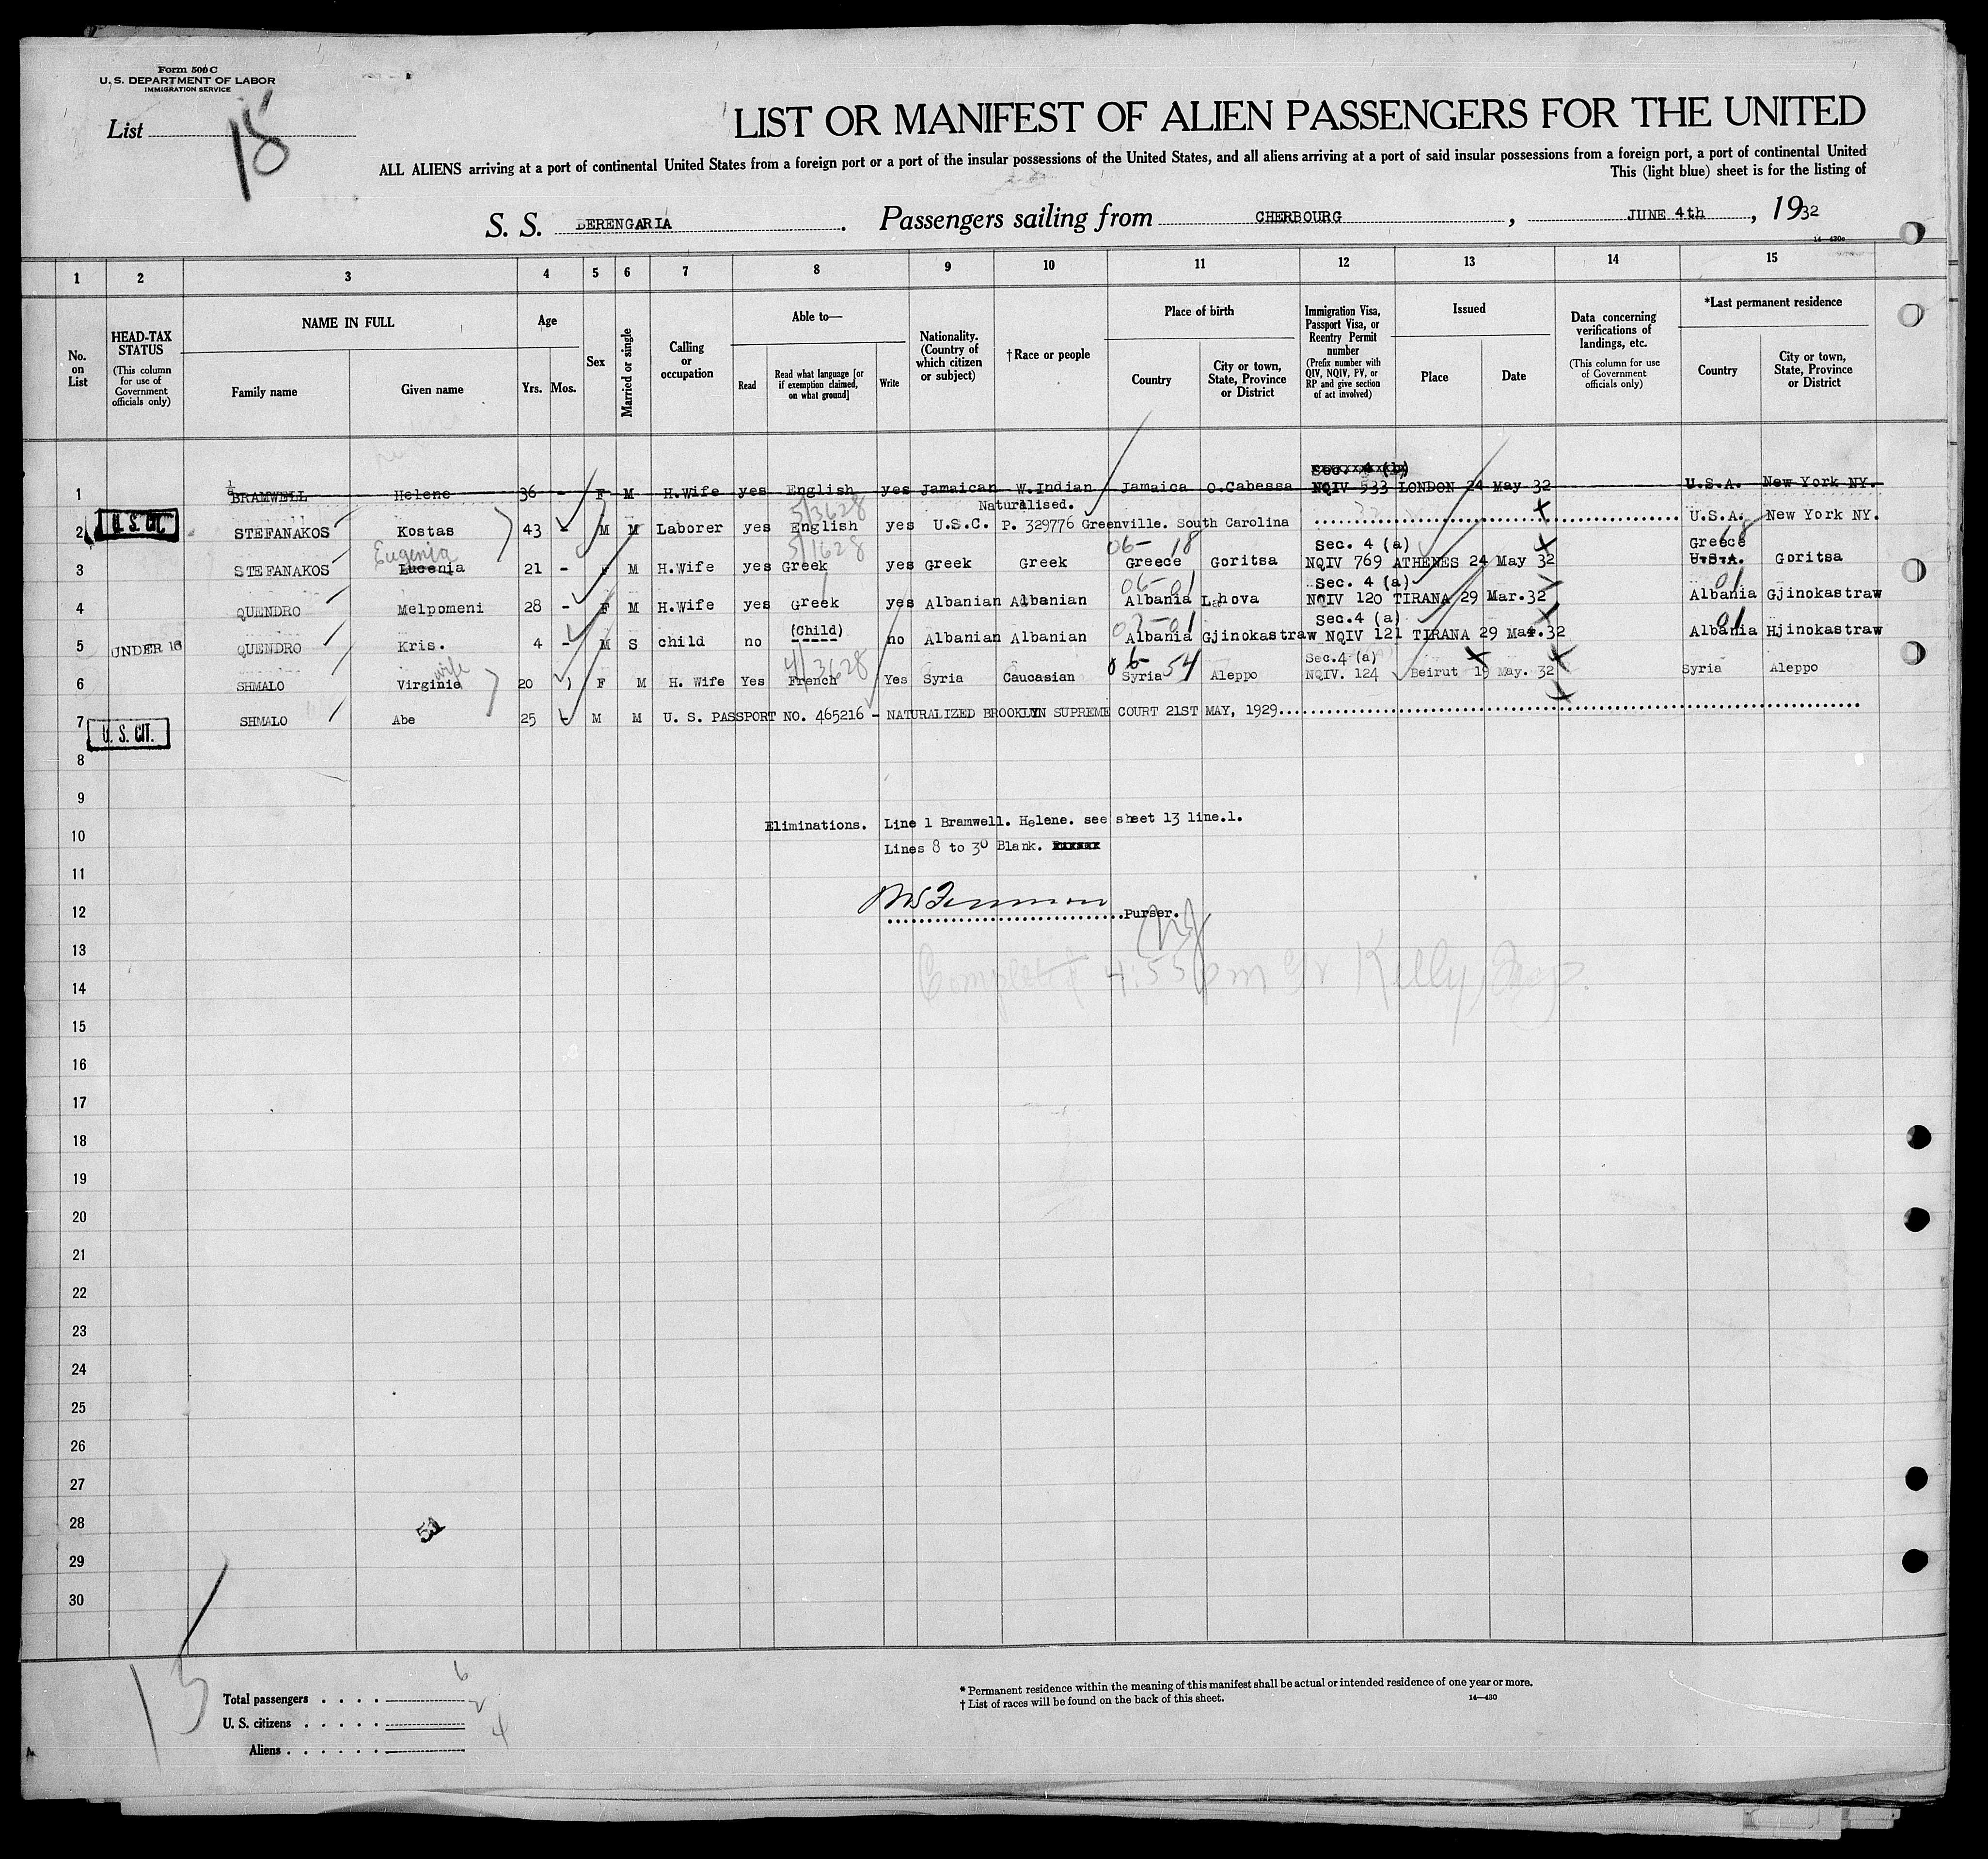 Form 500 C
U. S. DEPARTMENT OF LABOR
IMMIGRATION SERVICE
List 15
LIST OR MANIFEST OF ALIEN PASSENGERS FOR THE UNITED
ALL ALIENS arriving at a port of continental United States from a foreign port or a port of the insular possessions of the United States, and all aliens arriving at a port of said insular possessions from a foreign port, a port of continental United
This (light blue) sheet is for the listing of
S. S. BERENGARIA . Passengers sailing from CHERBOURG , JUNE 4th , 1932
14—430a
1 2 3 4 5 6 7 8 9 10 11 12 13 14 15
No. on List
HEAD-TAX STATUS (This column for use of Government officials only)
NAME IN FULL
Family name Given name
Age
Yrs. Mos.
Sex
Married or single
Calling or occupation
Able to—
Read
Read what language [or if exemption claimed, on what ground]
Write
Nationality. (Country of which citizen or subject)
†Race or people
Place of birth
Country
City or town, State, Province or District
Immigration Visa, Passport Visa, or Reentry Permit number (Prefix number with QIV, NQIV, PV, or RP and give section of act involved)
Issued
Place Date
Data concerning verifications of landings, etc. (This column for use of Government officials only)
*Last permanent residence
Country
City or town, State, Province or District
Sec. 4 (b)
1 BRAMWELL Helene 36 - F M H.Wife yes English yes Jamaican W.Indian Jamaica O.Cabessa NQIV 533 LONDON 24 May 32 U.S.A. New York NY.
5/3628 Naturalised.
2 U. S. CIT. STEFANAKOS Kostas 43 - M M Laborer yes English yes U.S.C. P. 329776 Greenville. South Carolina U.S.A. New York NY.
Eugenia 5/1628 06- 18 Sec. 4 (a) Greece
3 STEFANAKOS Eucenia 21 - F M H.Wife yes Greek yes Greek Greek Greece Goritsa NQIV 769 ATHENES 24 May 32 U.S.A. Goritsa
06-01 Sec. 4 (a) 01
4 QUENDRO Melpomeni 28 - F M H.Wife yes Greek yes Albanian Albanian Albania Lahova NQIV 120 TIRANA 29 Mar.32 Albania Gjinokastraw
(Child) 07-01 Sec.4 (a) 01
5 UNDER 16 QUENDRO Kris. 4 - M S child no no Albanian Albanian Albania Gjinokastraw NQIV 121 TIRANA 29 Mar.32 Albania Hjinokastraw
wife 4/3628 06- 54 Sec.4 (a)
6 SHMALO Virginie 20 F M H. Wife Yes French Yes Syria Caucasian Syria Aleppo NQIV. 124 Beirut 19 May. 32 Syria Aleppo
7 U. S. CIT. SHMALO Abe 25 - M M U. S. PASSPORT NO. 465216 - NATURALIZED BROOKLYN SUPREME COURT 21ST MAY, 1929
8
9
10 Eliminations. Line 1 Bramwell. Helene. see sheet 13 line.1.
Lines 8 to 30 Blank.
11
12 Purser.
13
14 Completed 4:55 pm Kelly, Insp.
15
16
17
18
19
20
21
22
23
24
25
26
27
28
29
30
15
Total passengers . . . . 6
U. S. citizens . . . . . 2
Aliens . . . . . . 4
* Permanent residence within the meaning of this manifest shall be actual or intended residence of one year or more.
† List of races will be found on the back of this sheet.
14—430